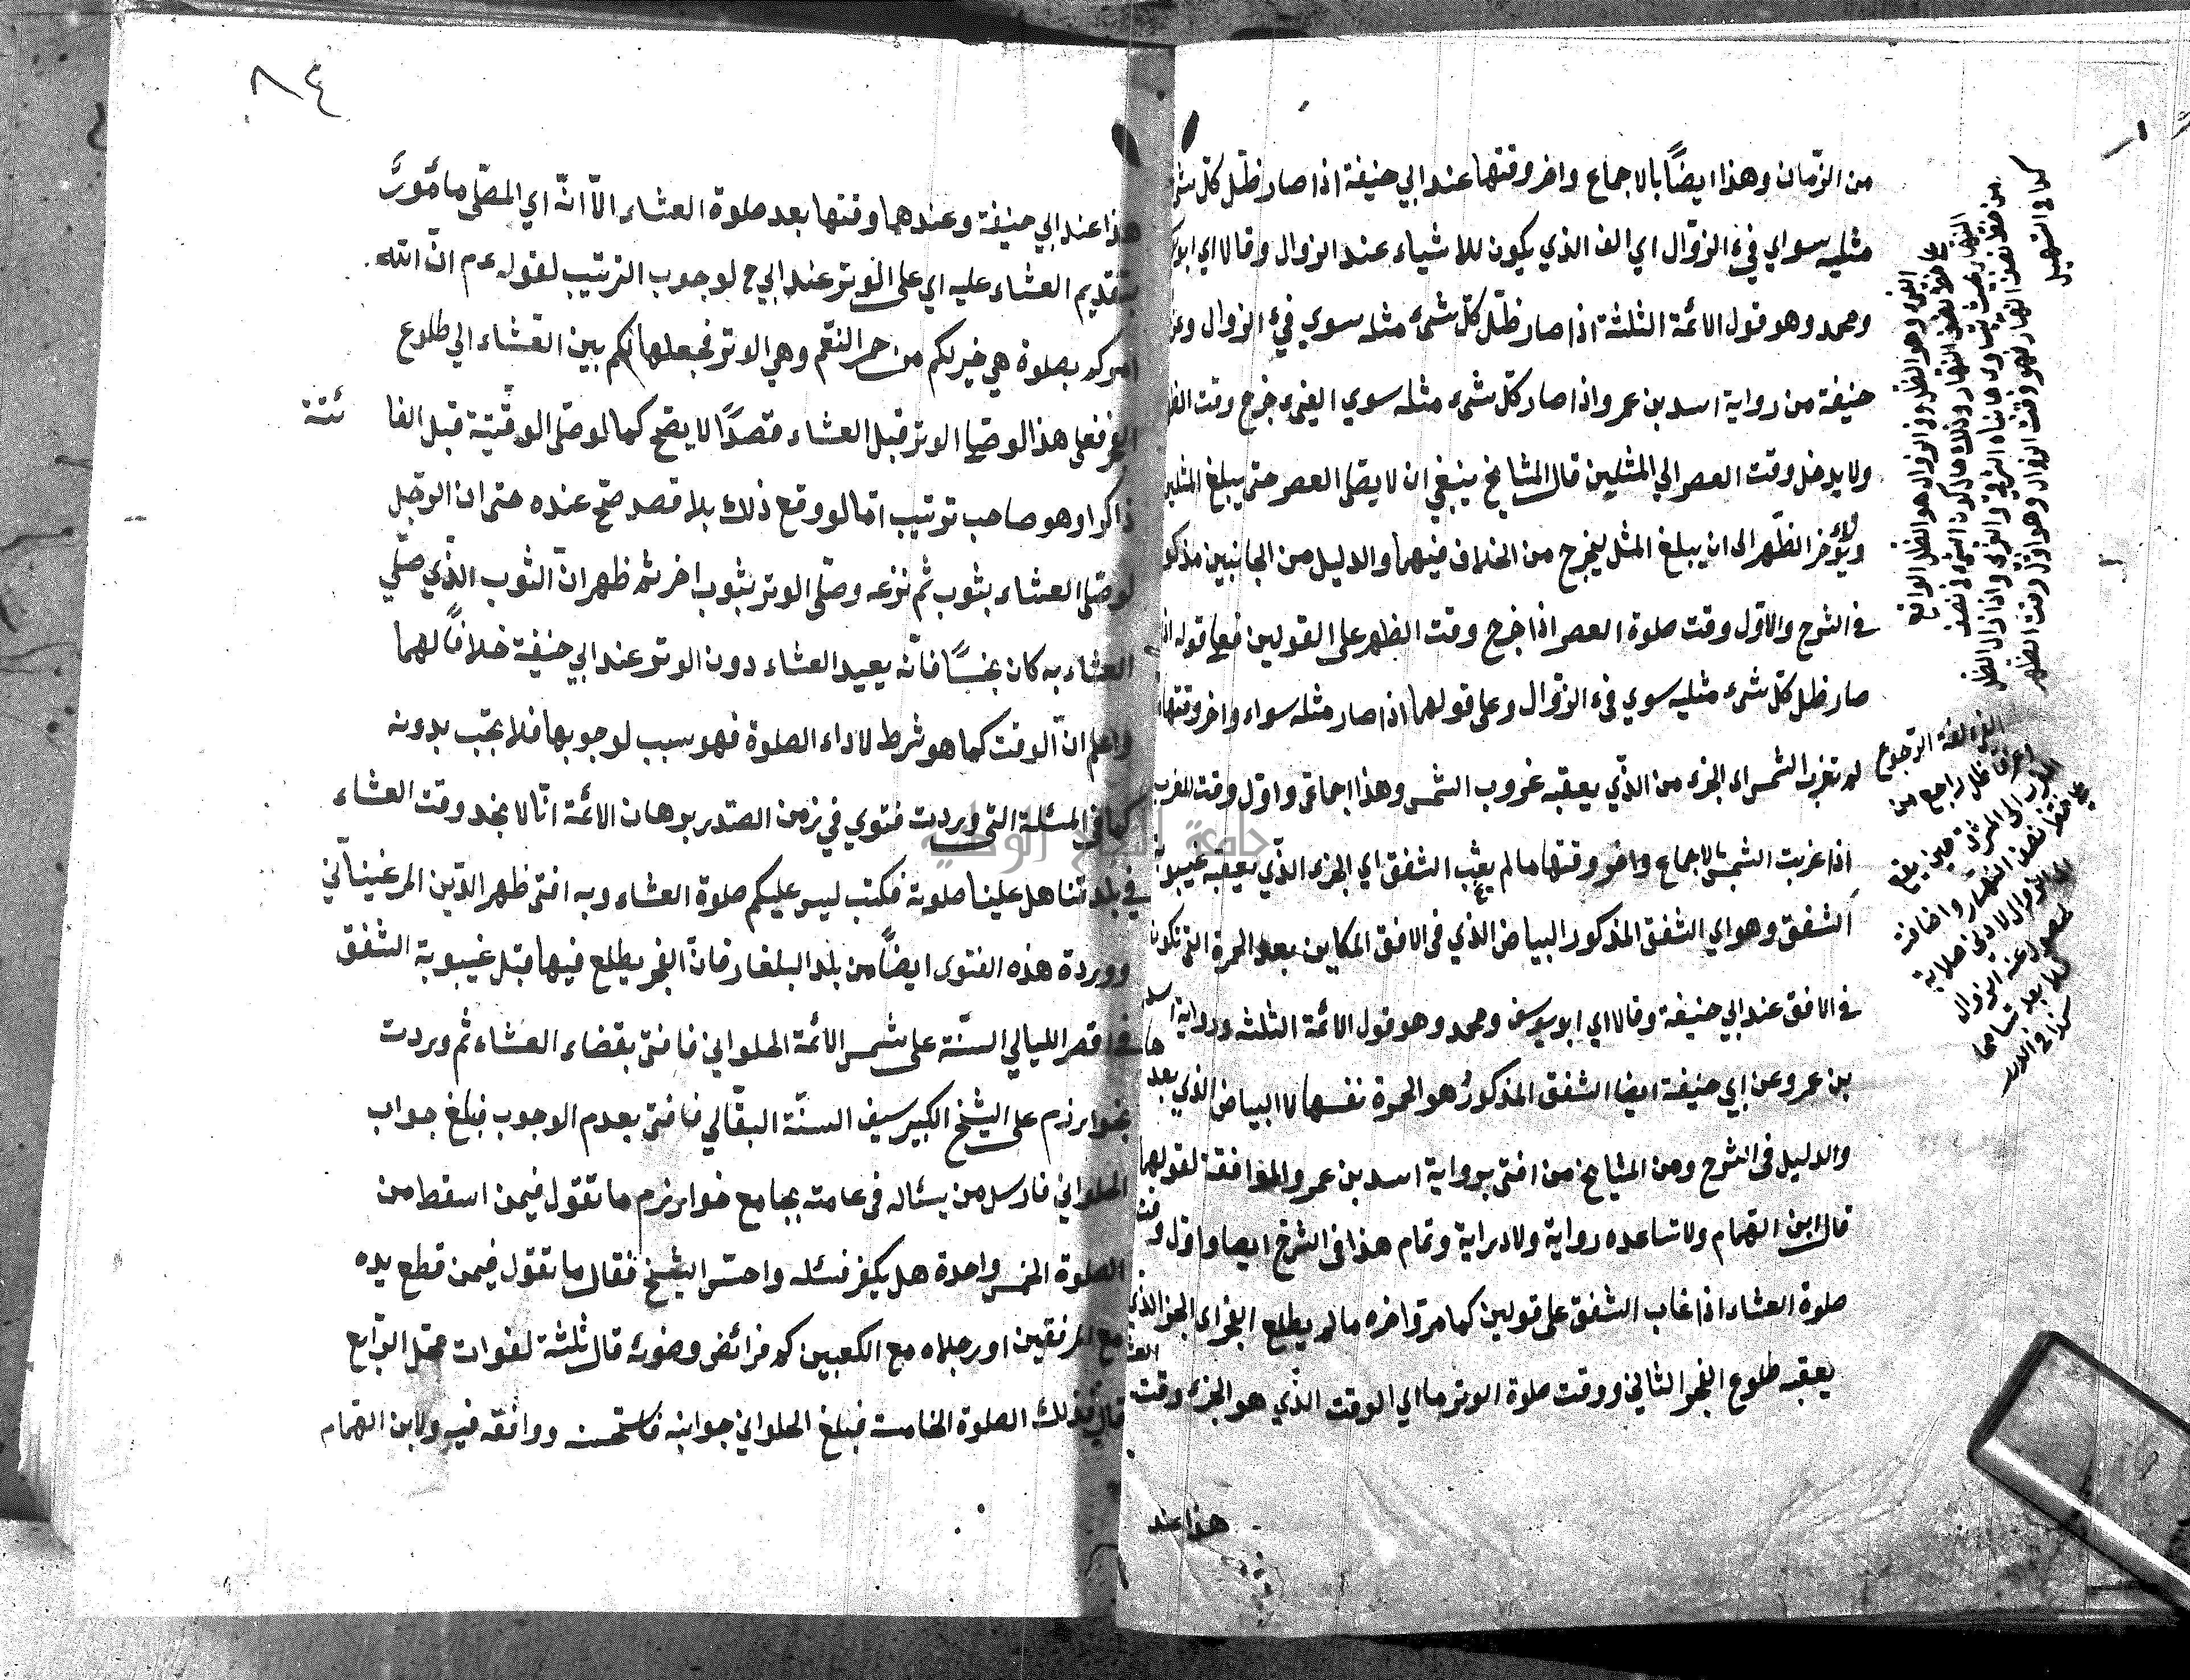 من الزّمان وهذا ايضاً بالاجماع واخر وقتها عند ابي حنيفة اذا صار ظلّ كلّ شئ
مثليه سواي فيء الزوّال اي الفئ الذي يكون للاشياء عند الزوال وقالا اي ابو
ومحمد وهو قول الائمة الثلثة اذا صار ظلّ كلّ شئ مثله سوي فيء الزوال وعن
حنيفة من رواية اسد بن عمرو اذا صار كلّ شيء مثله سوي الفيء خرج وقت الظهر
ولا يدخل وقت العصر الي المثلين قال المشايخ ينبغي ان لا يصلى العصر حتى يبلغ المثلين
ولا يؤخر الظّهر الى ان يبلغ المثل ليخرج من الخلاف فيهما والدليل من الجانبين مذكور
في الشرح والاوّل وقت صلوة العصر اذا خرج وقت الظهر على القولين فعلى قوله اذا
صار ظل كلّ شيء مثليه سوي فيء الزوّال وعلى قولهما اذا صار مثله سواء واخر وقتها
لم تغرب الشمس اى الجزء من الذّي يعقبه غروب الشمس وهذا اجماعى واوّل وقت المغرب
اذا غربت الشمس بالاجماع واخر وقتها مالم يغب الشفق اي الجزء الذّي يعقبه غيبوبة
الشفق وهو اي الشفق المذكور البياض الذي في الافق الكاين بعد الحمرة التى تكون
في الافق عند ابي حنيفة وقالا اي ابو يوسف ومحمد وهو قول الائمة الثلثه ورواية اسد
بن عمرو عن ابي حنيفة ايضا الشفق المذكور هو الحمرة نفسها لا البياض الذي بعدها
والدليل في الشرح ومن المشايخ من افتى برواية اسد بن عمرو الموافقة لقولهما
قال ابن الهمام ولا تساعده رواية ولا دراية وتمام هذا في الشرح ايضا واوّل وقت
صلوة العشاء اذا غاب الشفق على قولين كما مرّ واخره مالم يطلع الفجر اى الجزء الذي
يعقبه طلوع الفجر الثاني ووقت صلوة الوتر ما اي الوقت الذّي هو الجزء وقت العشاء
هذا عند
كذا في التسهيل
الفيء لغة الرجوع
وعرفا ظل راجع من
المغرب الى المشرق حين يقع
على خط نصف النهار واضافته
الى الزوال لادنى ملابسة
لحصوله عند الزوال
كذا في الدرر
٨٤
هذا عند ابي حنيفة وعندهما وقتها بعد صلوة العشاء الاّ انّه اي المصّلى مأمورٌ
بتقديم العشاء عليه اي على الوتر عند ابي ح لوجوب الترتيب لقوله عم انّ الله
امركم بصلوة هي خير لكم من حمر النعّم وهي الوتر فجعلها لكم بين العشاء الي طلوع
الفجر فعلى هذا لو صّلى الوتر قبل العشاء قصداً لا يصحّ كما لو صّلى الوقتية قبل الفا
ئتة
ذاكرا وهو صاحب ترتيب امّا لو وقع ذلك بلا قصد صحّ عنده حتى ان الرجل
لو صّلى العشاء بثوب ثم نزعه وصّلى الوتر بثوب اخر ثم ظهر انّ الثوب الذّي صلّي
العشاء به كان نجسًا فانّه يعيد العشاء دون الوتر عند ابي حنيفة خلافًا لهما
واعلم انّ الوقت كما هو شرط لاداء الصلوة فهو سبب لوجوبها فلا تجب بدونه
كما في المسئلة التى وردت فتوي في زمن الصدر برهان الائمّة انّا لا نجد وقت العشاء
في بلدتنا هل علينا صلوته فكتب ليس عليكم صلوة العشاء وبه افتى ظهر الدّين المرغيناني
ووردة هذه الفتوى ايضاً من بلد البلغار فانّ الفجر يطلع فيها قبل غيبوبة الشفق
في اقصر الليالي السنّة على شمس الائمّة الحلواني فافتى بقضاء العشاء ثم وردت
بخوارزم على الشيخ الكبير سيف السنّة البقّالي فافتى بعدم الوجوب فبلغ جواب
الحلواني فارسل من يسئاله في عامته بجامع خوارزم ما تقول فيمن اسقط من
الصلوة الخمس واحدة هل يكفر فسئله واحسّ الشيخ فقال ما تقول فيمن قطع يده
مع المرفقين او رجلاه مع الكعبين كم فرائض وضوئه قال ثلثة لفوات محل الرّابع
قال فذلك الصلوة الخامسة فبلغ الحلواني جوابه فاستحسنه ووافقه فيه ولابن الهمام
جامعة النجاح الوطنية